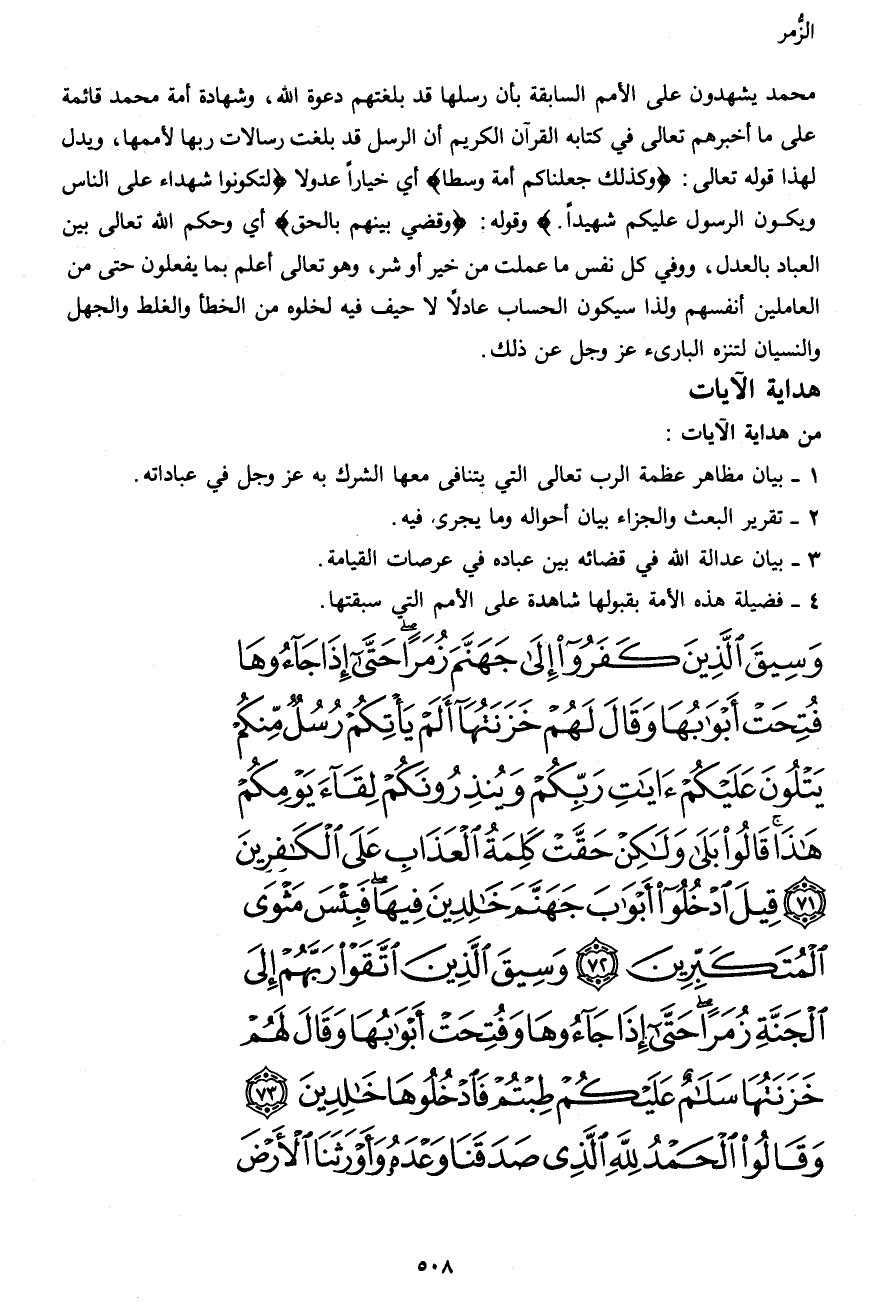 الزُّمر
محمد يشهدون على الأمم السابقة بأن رسلها قد بلغتهم دعوة الله، وشهادة أمة محمد قائمة
على ما أخبرهم تعالى في كتابه القرآن الكريم أن الرسل قد بلغت رسالات ربها لأممها، ويدل
لهذا قوله تعالى: ﴿وكذلك جعلناكم أمة وسطا﴾ أي خياراً عدولا ﴿لتكونوا شهداء على الناس
ويكون الرسول عليكم شهيداً.﴾ وقوله: ﴿وقضي بينهم بالحق﴾ أي وحكم الله تعالى بين
العباد بالعدل، ووفي كل نفس ما عملت من خير أو شر، وهو تعالى أعلم بما يفعلون حتى من
العاملين أنفسهم ولذا سيكون الحساب عادلاً لا حيف فيه لخلوه من الخطأ والغلط والجهل
والنسيان لتنزه البارىء عز وجل عن ذلك.
هداية الآيات
من هداية الآيات :
١ - بيان مظاهر عظمة الرب تعالى التي يتنافى معها الشرك به عز وجل في عباداته.
٢ - تقرير البعث والجزاء بيان أحواله وما يجرى فيه.
٣ - بيان عدالة الله في قضائه بين عباده في عرصات القيامة.
٤ - فضيلة هذه الأمة بقبولها شاهدة على الأمم التي سبقتها.
وَسِيقَ ٱلَّذِينَ كَفَرُوٓا۟ إِلَىٰ جَهَنَّمَ زُمَرًا ۖ حَتَّىٰٓ إِذَا جَآءُوهَا
فُتِحَتْ أَبْوَٰبُهَا وَقَالَ لَهُمْ خَزَنَتُهَآ أَلَمْ يَأْتِكُمْ رُسُلٌ مِّنكُمْ
يَتْلُونَ عَلَيْكُمْ ءَايَٰتِ رَبِّكُمْ وَيُنذِرُونَكُمْ لِقَآءَ يَوْمِكُمْ
هَٰذَا ۚ قَالُوا۟ بَلَىٰ وَلَٰكِنْ حَقَّتْ كَلِمَةُ ٱلْعَذَابِ عَلَى ٱلْكَٰفِرِينَ
﴿٧١﴾ قِيلَ ٱدْخُلُوٓا۟ أَبْوَٰبَ جَهَنَّمَ خَٰلِدِينَ فِيهَا ۖ فَبِئْسَ مَثْوَى
ٱلْمُتَكَبِّرِينَ ﴿٧٢﴾ وَسِيقَ ٱلَّذِينَ ٱتَّقَوْا۟ رَبَّهُمْ إِلَى
ٱلْجَنَّةِ زُمَرًا ۖ حَتَّىٰٓ إِذَا جَآءُوهَا وَفُتِحَتْ أَبْوَٰبُهَا وَقَالَ لَهُمْ
خَزَنَتُهَا سَلَٰمٌ عَلَيْكُمْ طِبْتُمْ فَٱدْخُلُوهَا خَٰلِدِينَ ﴿٧٣﴾
وَقَالُوا۟ ٱلْحَمْدُ لِلَّهِ ٱلَّذِى صَدَقَنَا وَعْدَهُۥ وَأَوْرَثَنَا ٱلْأَرْضَ
٥٠٨